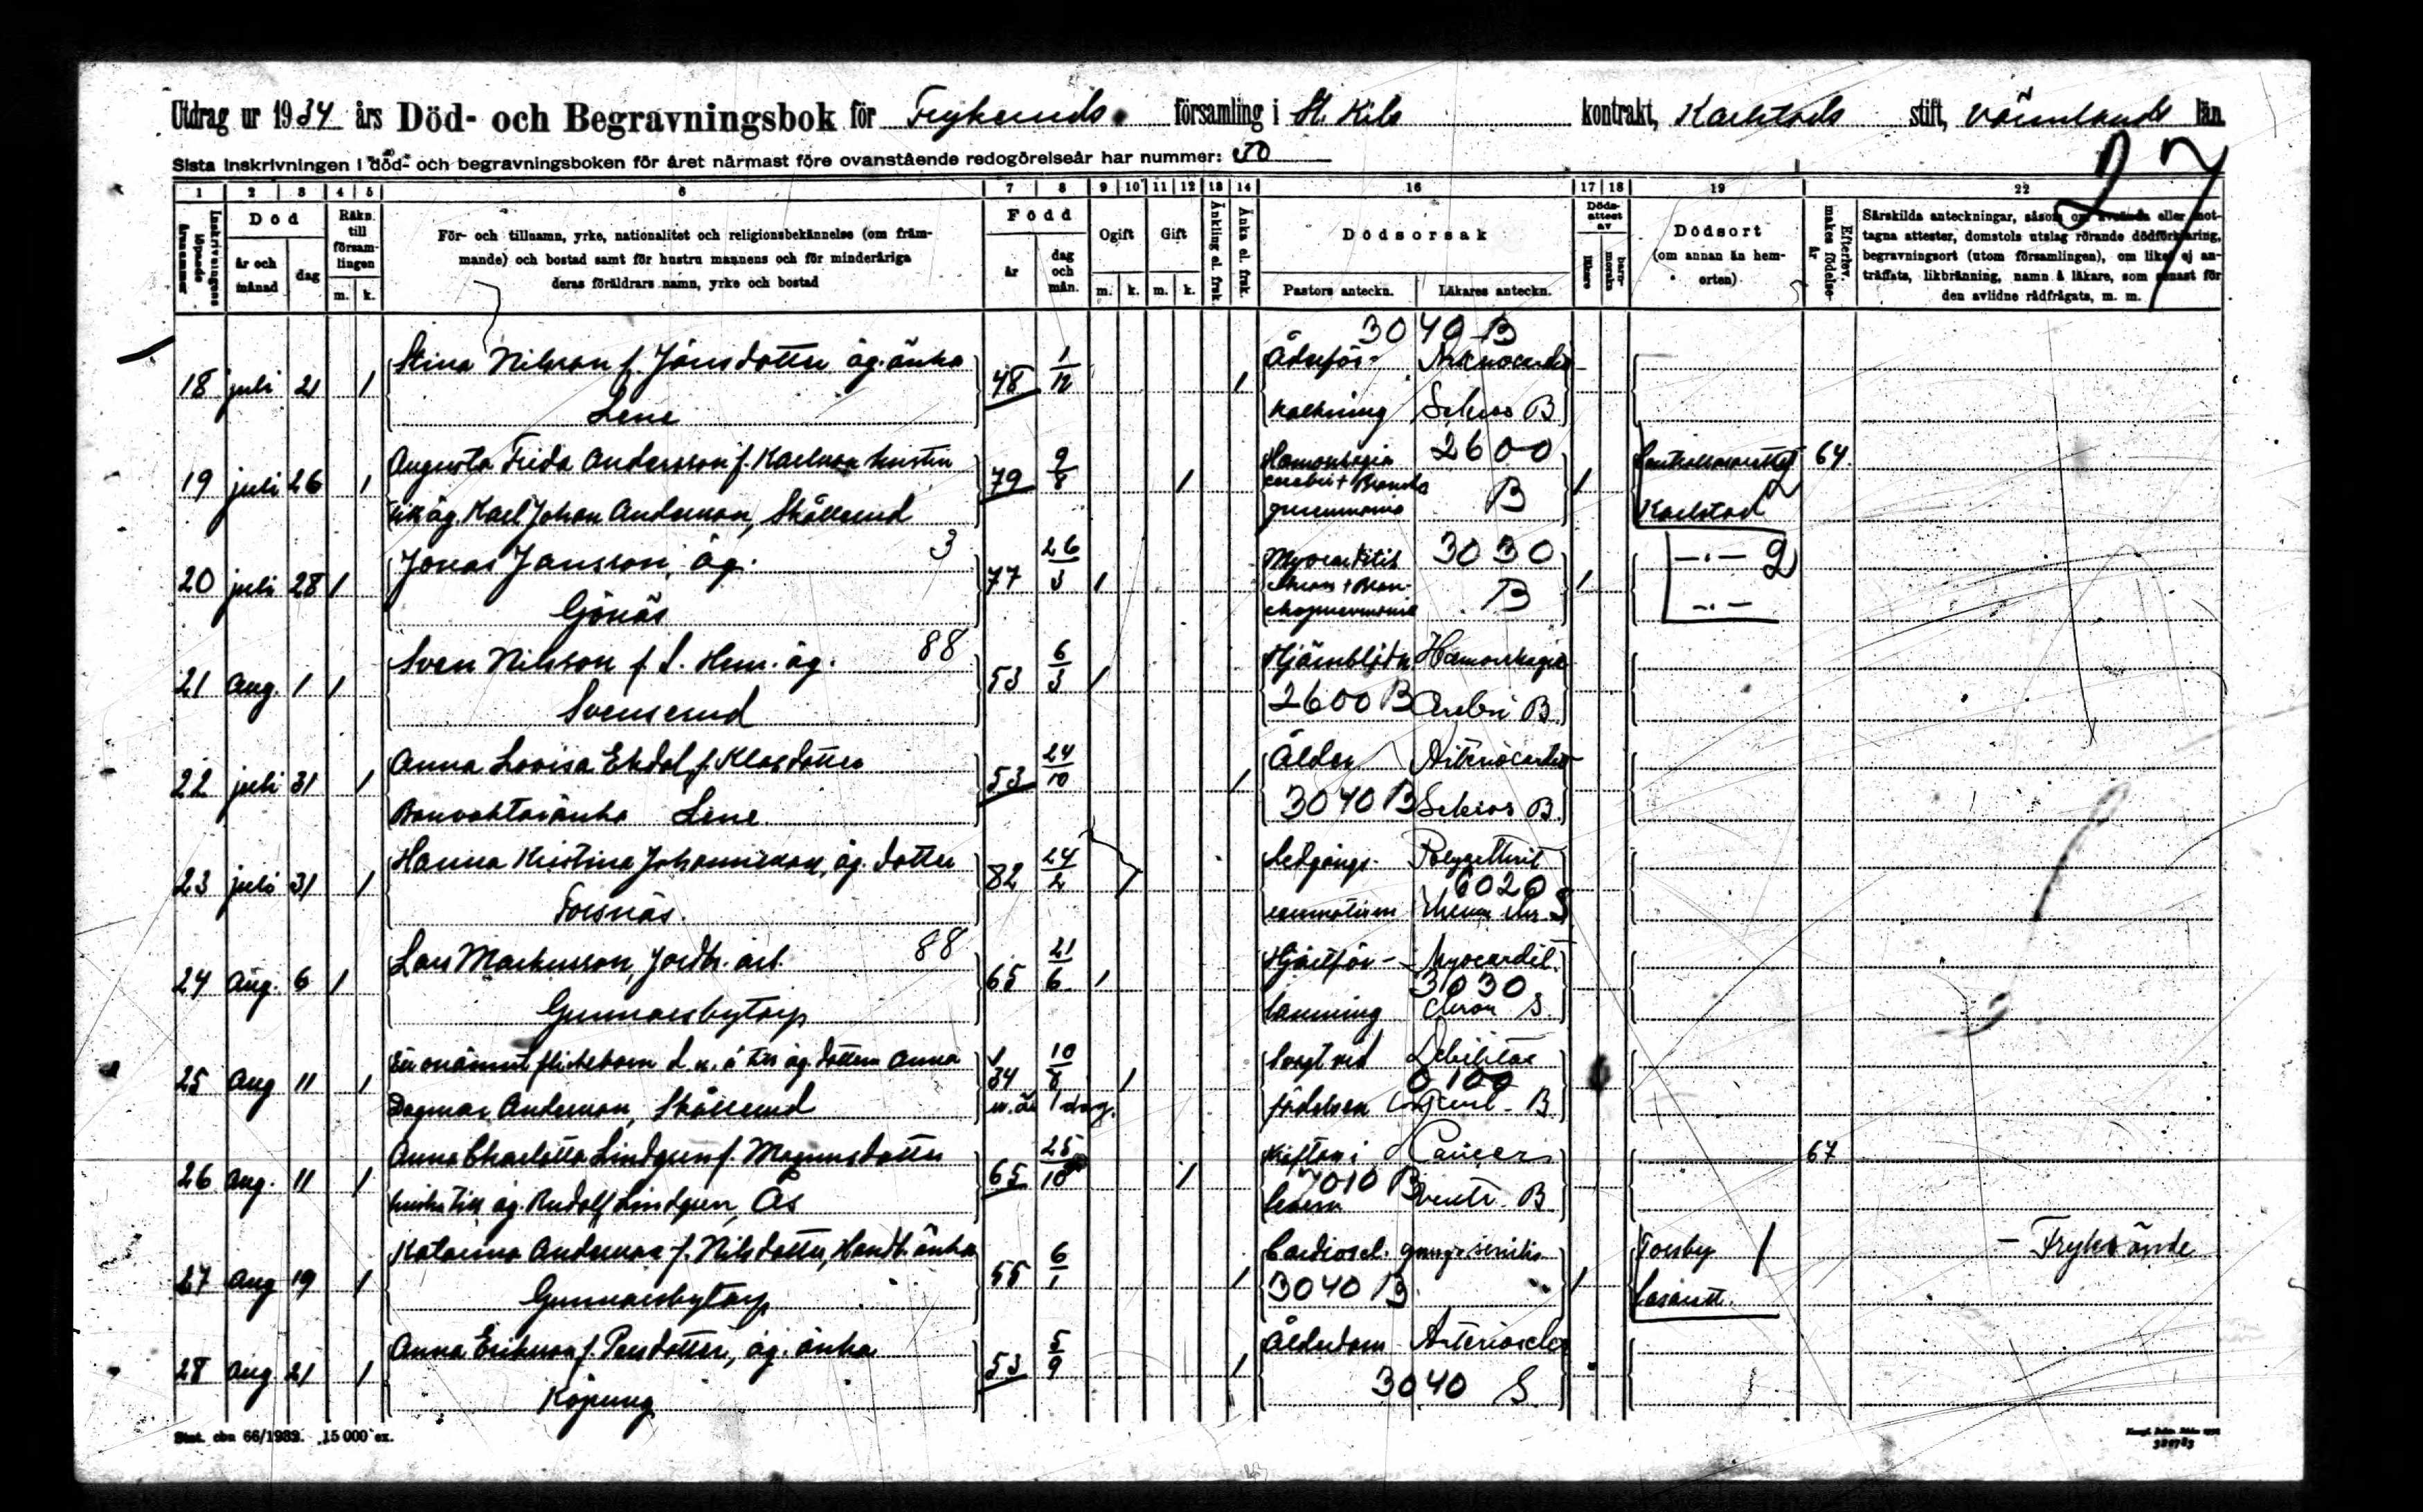 Utdrag ur 1934 års Död- och Begravningsbok för Frykeruds församling i St. Kils kontrakt, Karlstads stift, Värmlands län.
Sista inskrivningen i död- och begravningsboken för året närmast före ovanstående redogörelseår har nummer: 50
27
1 2 3 4 5 6 7 8 9 10 11 12 13 14 16 17 18 19 22
Inskrivningens löpande årsnummer
Död
år och månad
dag
Räkn. till församlingen
m. k.
För- och tillnamn, yrke, nationalitet och religionsbekännelse (om främmande) och bostad samt för hustru mannens och för minderåriga deras föräldrars namn, yrke och bostad
Född
år
dag och mån.
Ogift
m. k.
Gift
m. k.
Änkling el. frsk.
Änka el. frsk.
Dödsorsak
Pastors anteckn. Läkares anteckn.
Dödsattest av
läkare
barnmorska
Dödsort
(om annan än hemorten)
Efterlev. makes födelseår
Särskilda anteckningar, såsom om avsända eller mottagna attester, domstols utslag rörande dödförklaring, begravningsort (utom församlingen), om liket ej anträffats, likbränning, namn å läkare, som senast för den avlidne rådfrågats, m. m.
3040 B
18 juli 21 1 Stina Nilsson f. Jönsdotter äg. änka 48 1/12 1 Åderför-
Lene kalkning Scleros B
19 juli 26 1 Augusta Frida Andersson f. Karlsson hustru 79 9/8 1 Hämorrhagia 2600 1 Centrallasarettet 2 64.
cerebri + Broncho
till äg. Karl Johan Andersson, Skållerud pneumonia B Karlstad
20 juli 28 1 Jonas Jansson, äg. 3 77 26/3 1 Myocarditis 3030 1 -.- 2
chron + Bron-
Gönäs chopneumonia B -.-
21 Aug. 1 1 Sven Nilsson f. d. Hem. äg. 88 53 6/3 1 Hjärnblödn Hæmorrhagia
Svenserud 2600 B Cerebri B
22 juli 31 1 Anna Lovisa Ekdal f. Klasdotter 53 24/10 1 Ålder
Banvaktaränka Lene 3040 B Scleros B
23 juli 31 1 Hanna Kristina Johannesson, äg. dotter 82 24/2 1 Ledgångs-
6020
Forsnäs. reumatism Rheum chr. S
24 Aug. 6 1 Lars Markusson, Jordbr. arb. 88 65 21/6 1 Hjärtför- Myocardit.
3030
Gunnarsbytorp lamning Chron S.
25 Aug 11 1 Ett onämnt flickebarn d. u. ä till äg. dottern Anna 34 10/8 1 Svagt vid Debilitas
0100
Dagmar Andersson, Skållerud 1 dag. födelsen Congenit. B
26 Aug. 11 1 Anna Charlotta Lindgren f. Magnusdotter 65 25/10 1 Kräftan i Cancer 67
7010 B
hustru till äg. Rudolf Lindgren, Ås levern ventr. B
27 Aug 19 1 Katarina Andersson f. Nilsdotter, Handl. änka 55 6/1 1 Cardioscl. gangr. senilis 1 Torsby 1 - Fryksände
Gunnarsbytorp 3040 B Lasarett.
28 Aug 21 1 Anna Eriksson f. Persdotter, äg. änka 53 5/9 1 Ålderdom Arterioscler
Köpung 3040 S
Stat. cbn 66/1933. 15 000 ex.